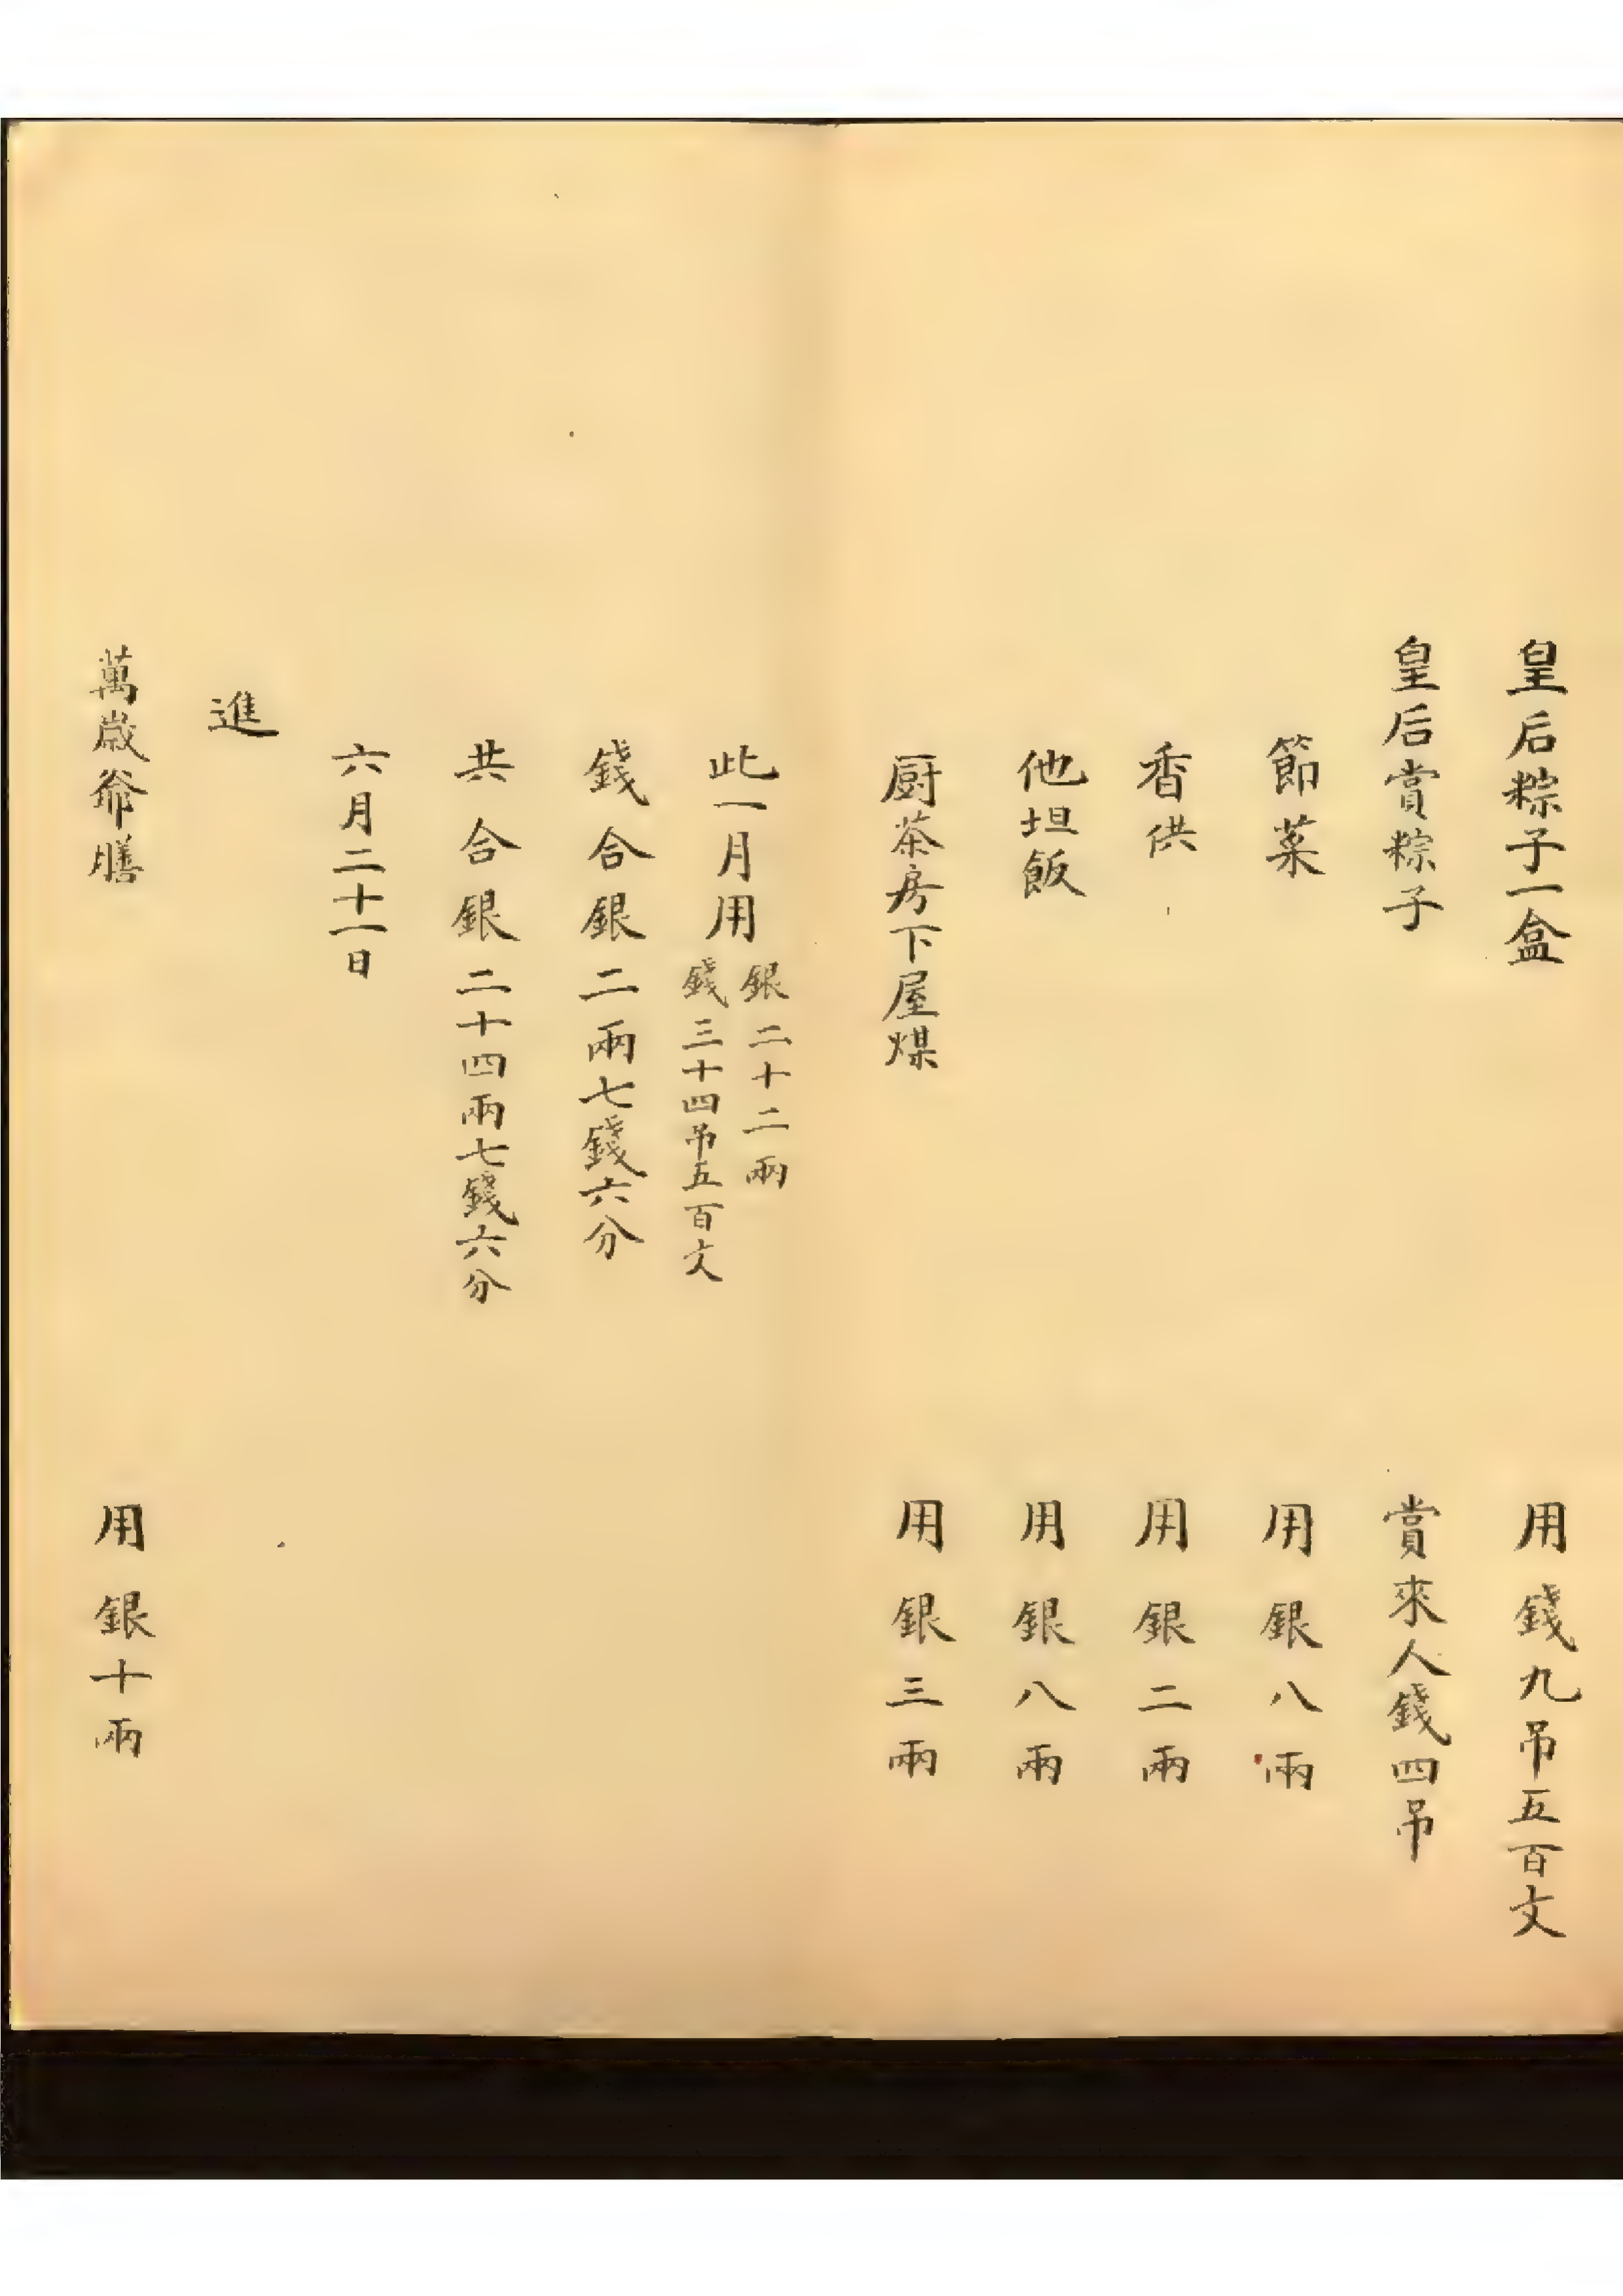 皇后粽子一盒 用錢九吊五百文
皇后賞粽子 賞來人錢四吊
節菜 用銀八兩
香供 用銀二兩
他坦飯 用銀八兩
厨茶房下屋煤 用銀三兩
此一月用 銀二十二兩 錢三十四吊五百文
錢合銀二兩七錢六分
共合銀二十四兩七錢六分
六月二十一日
進
萬歲爺膳 用銀十兩